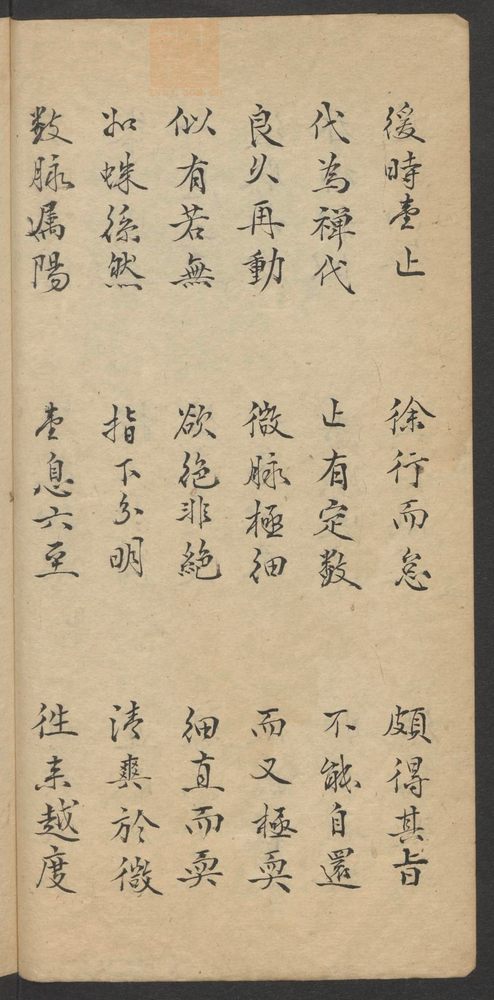 緩時壹止　徐行而怠　頗得其旨
代為禪代　止有定数　不能自還
良久再動　微脉極细　而又極耎
似有若無　欲绝非絶　细直而耎
如蛛絲然　指下分明　清爽於微
数脉属陽　壹息六至　徃来越度